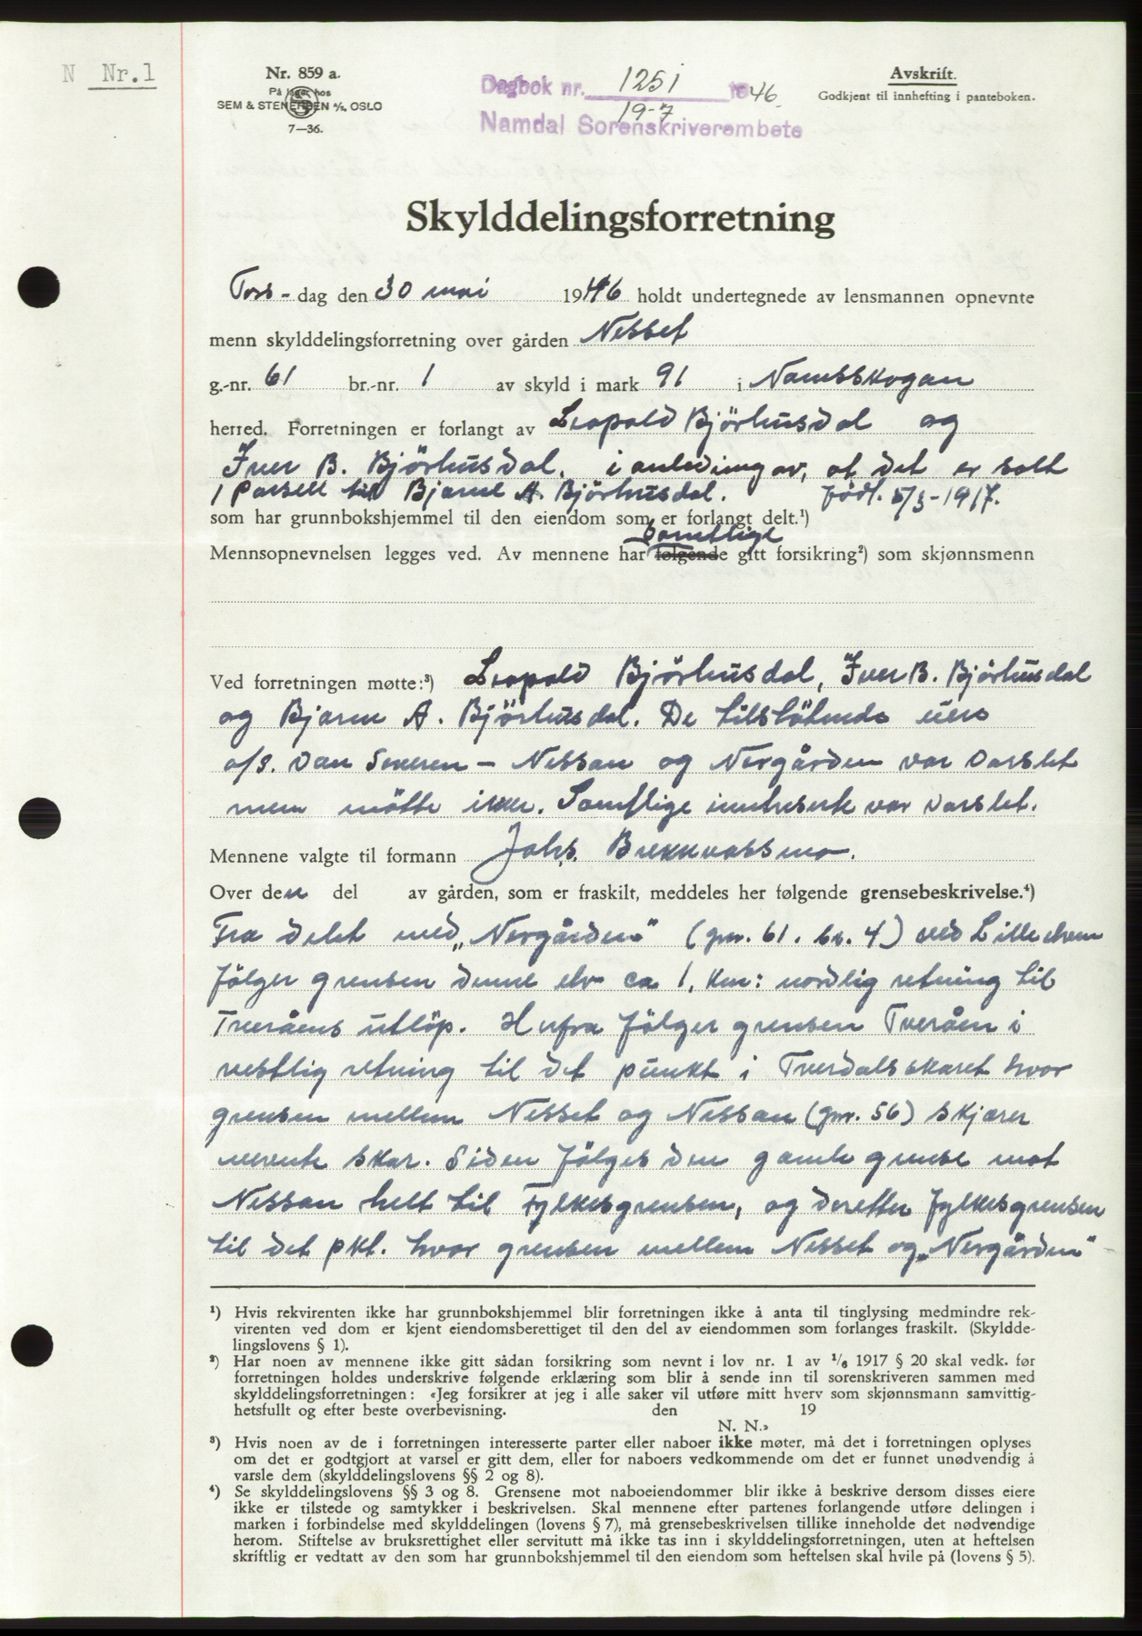 N Nr.1
Nr. 859 a.
På lager hos
SEM & STENERSEN A/S, OSLO
7—36.
Dagbok nr. 1251 1946.
19-7
Namdal Sorenskriverembete
Avskrift.
Godkjent til innhefting i panteboken.
Skylddelingsforretning
Tors-dag den 30 mai 1946 holdt undertegnede av lensmannen opnevnte
menn skylddelingsforretning over gården Nesset
g.-nr. 61 br.-nr. 1 av skyld i mark 91 i Namsskogan
herred. Forretningen er forlangt av Leopold Bjørhusdal og
Iver B. Bjørhusdal. i anledning av, at det er solt
1 Parsell til Bjarne A. Bjørhusdal. født. 5/3-1917.
som har grunnbokshjemmel til den eiendom som er forlangt delt.¹)
samtlige
Mennsopnevnelsen legges ved. Av mennene har følgende gitt forsikring²) som skjønnsmenn
Ved forretningen møtte:³) Leopold Bjørhusdal, Iver B. Bjørhusdal
og Bjarne A. Bjørhusdal. De tilstøtende eiere
a/s. Van Severen – Nessan og Nergården var varslet
men møtte ikke. Samtlige innteresserte var varslet.
Mennene valgte til formann Johs. Brekkvassmo.
Over den del av gården, som er fraskilt, meddeles her følgende grensebeskrivelse.⁴)
Fra delet med „Nergården" (gnr. 61. br. 4) ved Lilleelven
følger grensen denne elv ca 1, km: nordlig retning til
Tveråens utløp. Herfra følger grensen Tveråen i
vestlig retning til det punkt i Tverdalsskaret hvor
grensen mellem Nesset og Nessan (gnr. 56) skjærer
nevnte skar. Siden følges den gamle grense mot
Nessan helt til Fylkesgrensen, og deretter fylkesgrensen
til det pkt. hvor grensen mellem Nesset og „Nergården"
¹) Hvis rekvirenten ikke har grunnbokshjemmel blir forretningen ikke å anta til tinglysing medmindre rek-
virenten ved dom er kjent eiendomsberettiget til den del av eiendommen som forlanges fraskilt. (Skyldde-
lingslovens § 1).
²) Har noen av mennene ikke gitt sådan forsikring som nevnt i lov nr. 1 av 1/6 1917 § 20 skal vedk. før
forretningen holdes underskrive følgende erklæring som blir å sende inn til sorenskriveren sammen med
skylddelingsforretningen: «Jeg forsikrer at jeg i alle saker vil utføre mitt hverv som skjønnsmann samvittig-
hetsfullt og efter beste overbevisning. den 19
N. N.»
³) Hvis noen av de i forretningen interesserte parter eller naboer ikke møter, må det i forretningen oplyses
om det er godtgjort at varsel er gitt dem, eller for naboers vedkommende om det er funnet unødvendig å
varsle dem (skylddelingslovens §§ 2 og 8).
⁴) Se skylddelingslovens §§ 3 og 8. Grensene mot naboeiendommer blir ikke å beskrive dersom disses eiere
ikke er tilstede og samtykker i beskrivelsen. Skal mennene efter partenes forlangende utføre delingen i
marken i forbindelse med skylddelingen (lovens § 7), må grensebeskrivelsen tillike inneholde det nødvendige
herom. Stiftelse av bruksrettighet eller servitutt må ikke tas inn i skylddelingsforretningen, uten at heftelsen
skriftlig er vedtatt av den som har grunnbokshjemmel til den eiendom som heftelsen skal hvile på (lovens § 5).